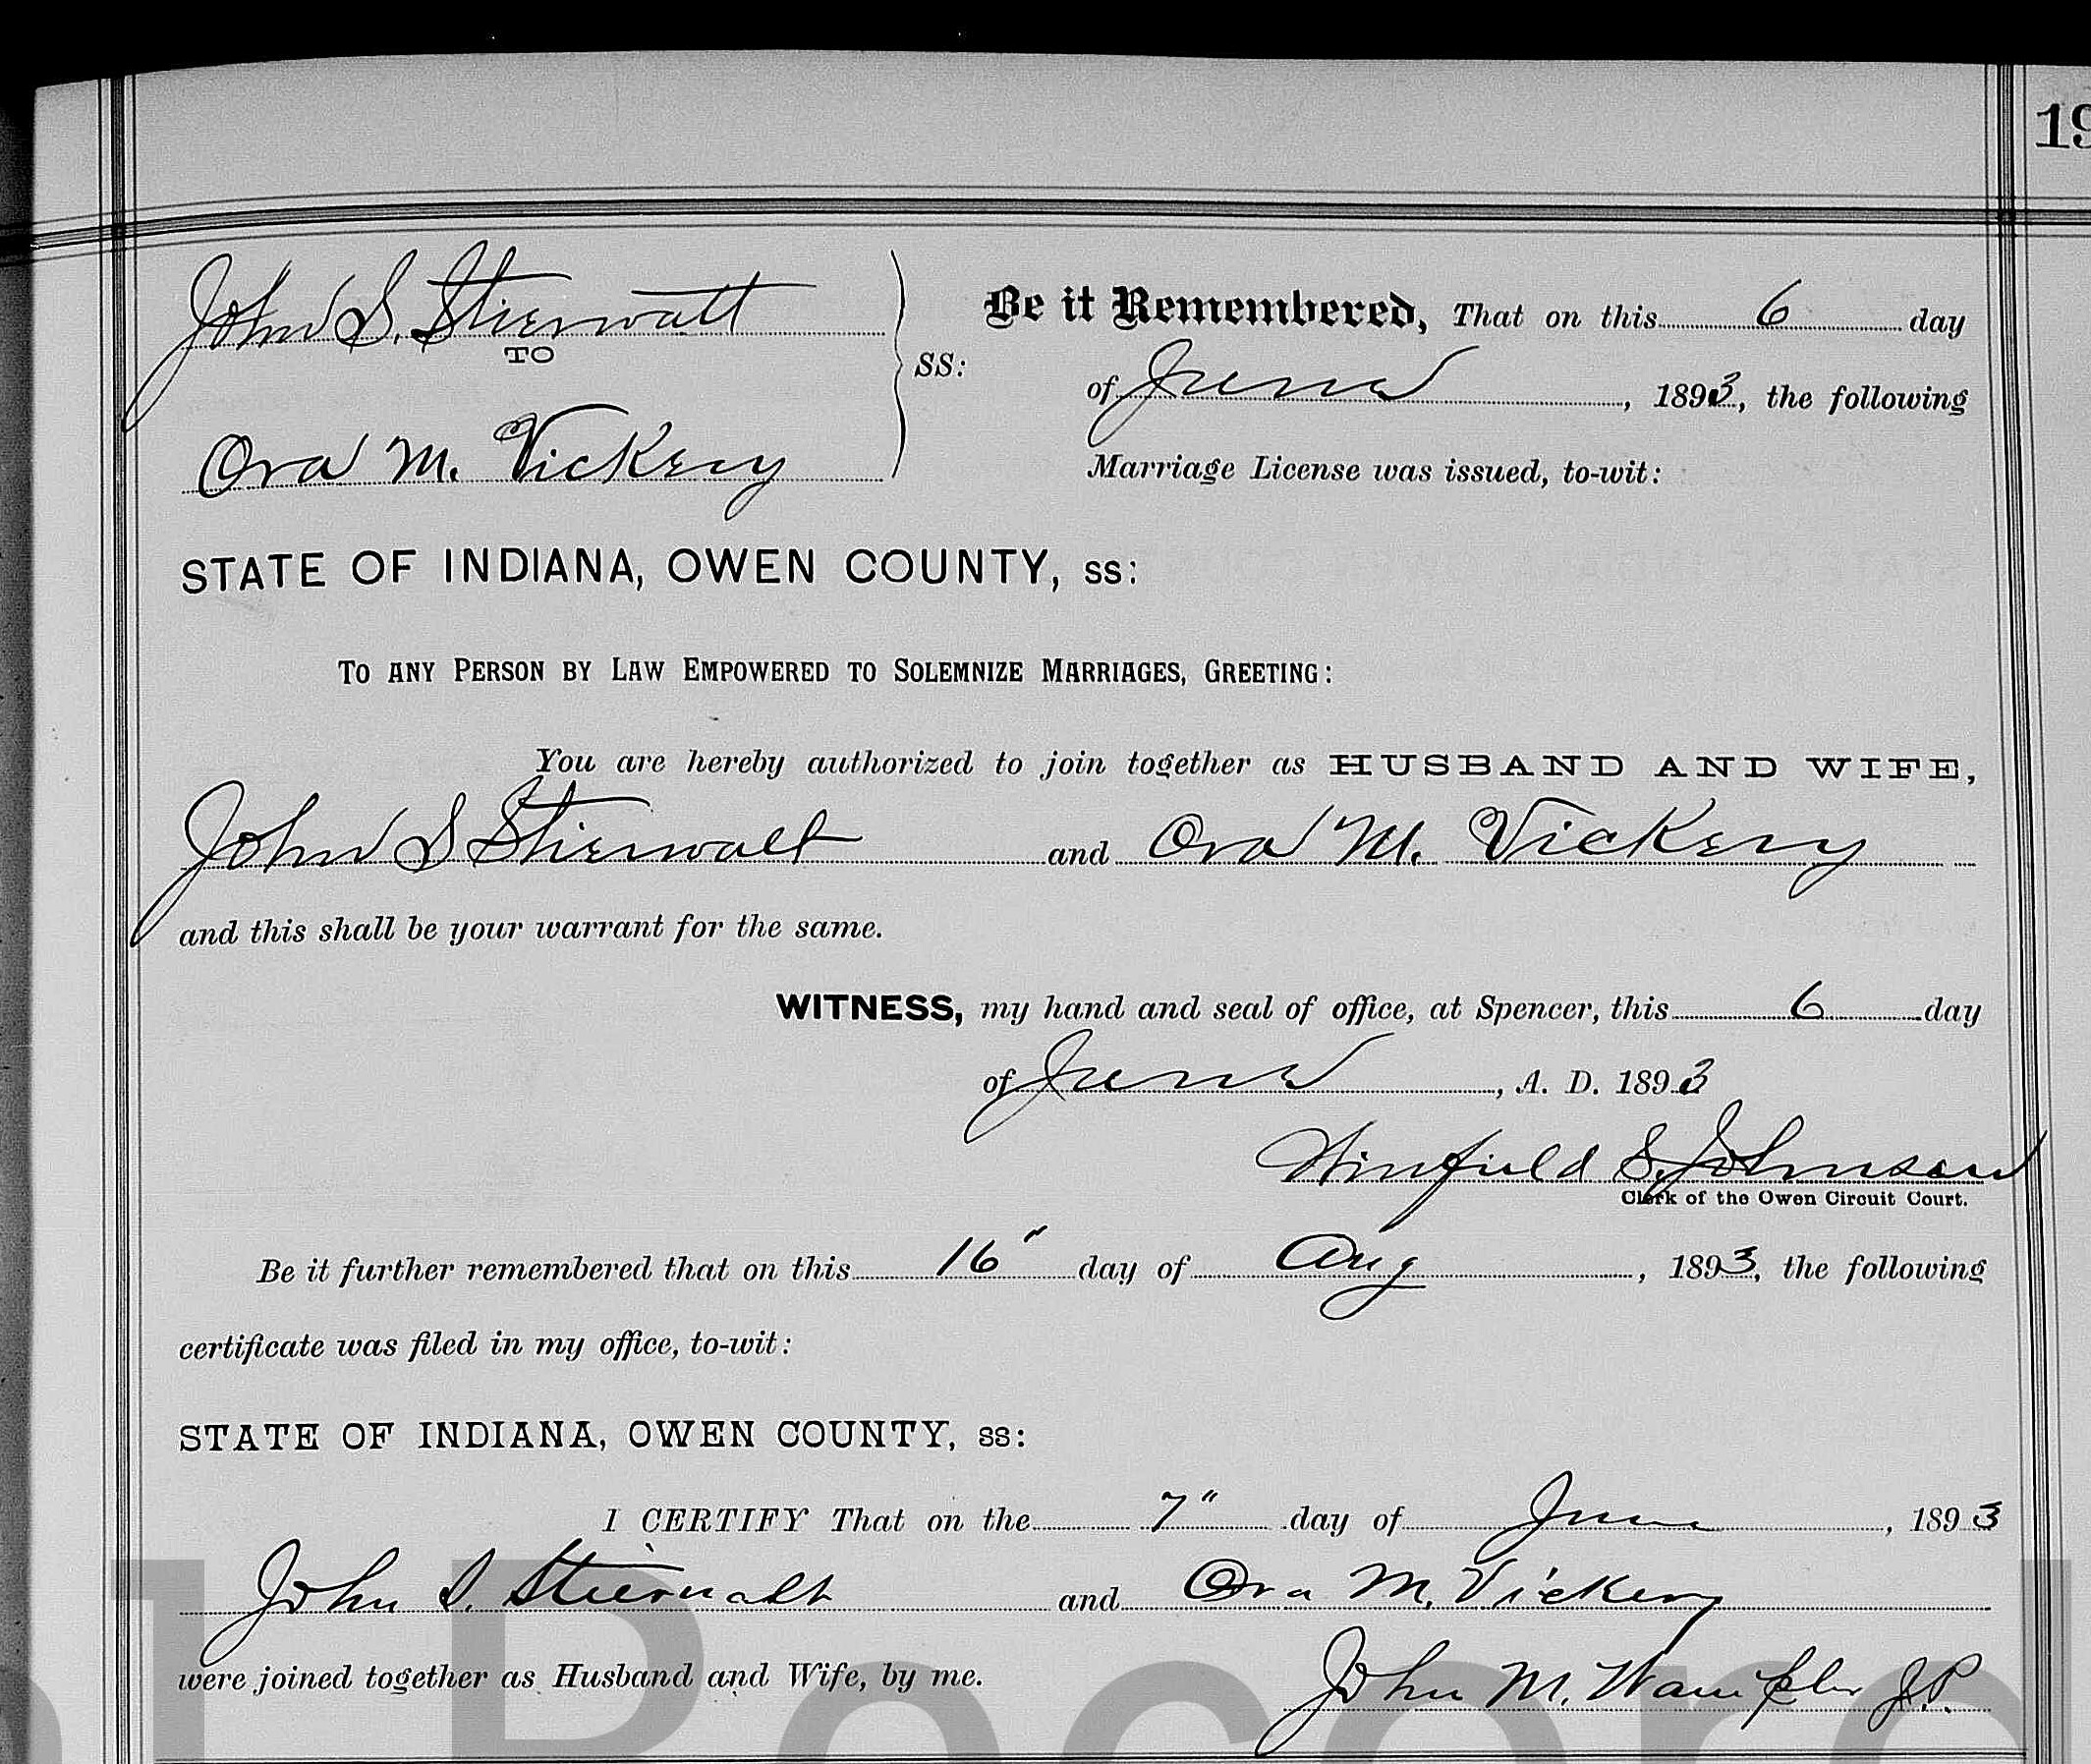 19
John S. Stierwalt
TO
Ora M. Vickery
SS:
Be it Remembered, That on this 6 day
of June, 1893, the following
Marriage License was issued, to-wit:
STATE OF INDIANA, OWEN COUNTY, ss:
TO ANY PERSON BY LAW EMPOWERED TO SOLEMNIZE MARRIAGES, GREETING:
You are hereby authorized to join together as HUSBAND AND WIFE,
John S Stierwalt and Ora M. Vickery
and this shall be your warrant for the same.
WITNESS, my hand and seal of office, at Spencer, this 6 day
of June, A. D. 1893
Winfield S. Johnson
Clerk of the Owen Circuit Court.
Be it further remembered that on this 16" day of Aug, 1893, the following
certificate was filed in my office, to-wit:
STATE OF INDIANA, OWEN COUNTY, ss:
I CERTIFY That on the 7" day of June, 1893
John S. Stierwalt and Ora M. Vickery
were joined together as Husband and Wife, by me.
John M. Wampler J.P.